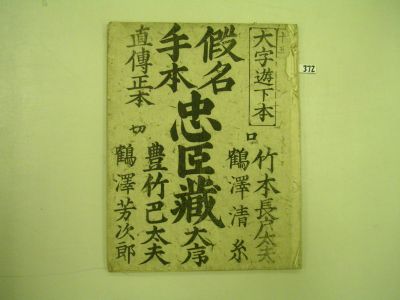 大字遊下本
假名
手本
忠臣藏
大序
直傳正本
口
竹本長戸太夫
鶴澤清糸
切
豊竹巴太夫
鶴澤芳次郎
372